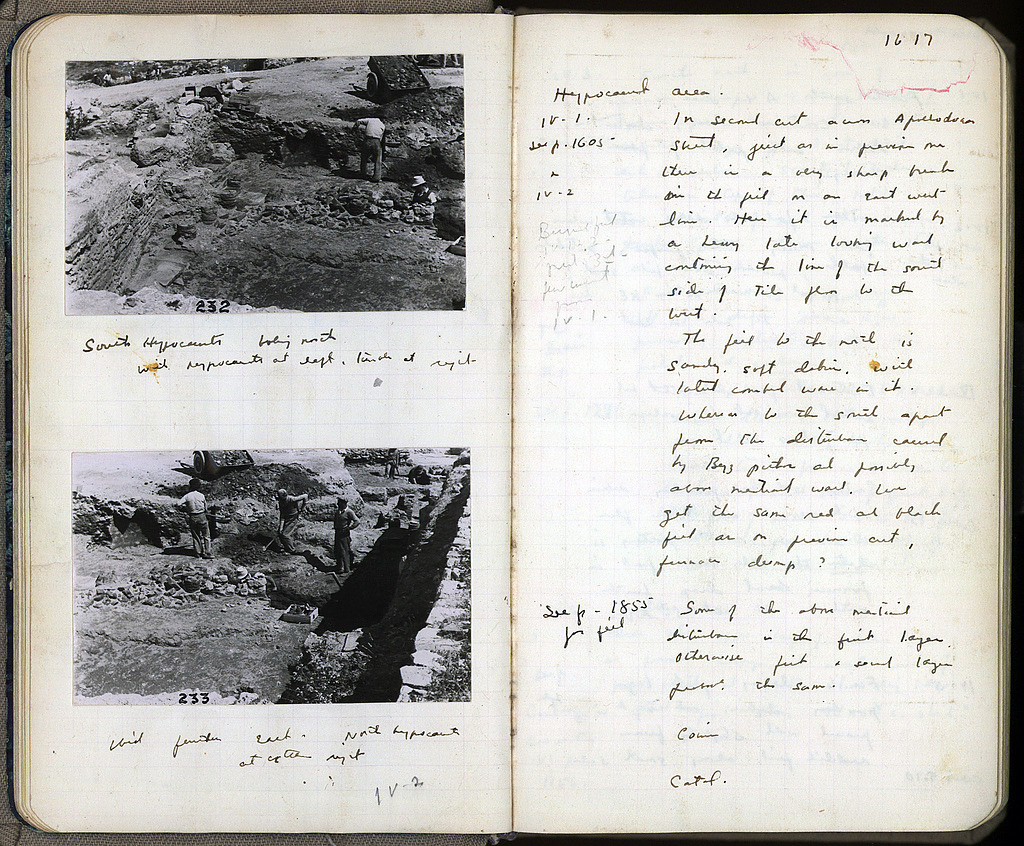 232
South Hypocausts looking north
with hypocausts at left. tanks at right
233
ibid further east. North hypocausts
at extreme right
IV-2
1617
Hypocaust area.
IV-1.
See p. 1605
IV-2
In second cut across Apollodoros
street, just as in previous one
there is a very sharp break
in the fill on an east west
line. Here it is marked by
a heavy late looking wall
continuing the line of the south
side of tile floor to the
west.
The fill to the north is
sandy, soft debris, with
latest combed ware in it
whereas to the south apart
from the disturbance caused
by Byz pithoi and possibly
above mentioned wall. we
get the same red and black
fill as in previous cut,
furnace dump?
See p-1855
for fill
Some of the above mentioned
disturbance in the first layer.
otherwise first & second layer
the same.
Coins
Catd.
IV-1.